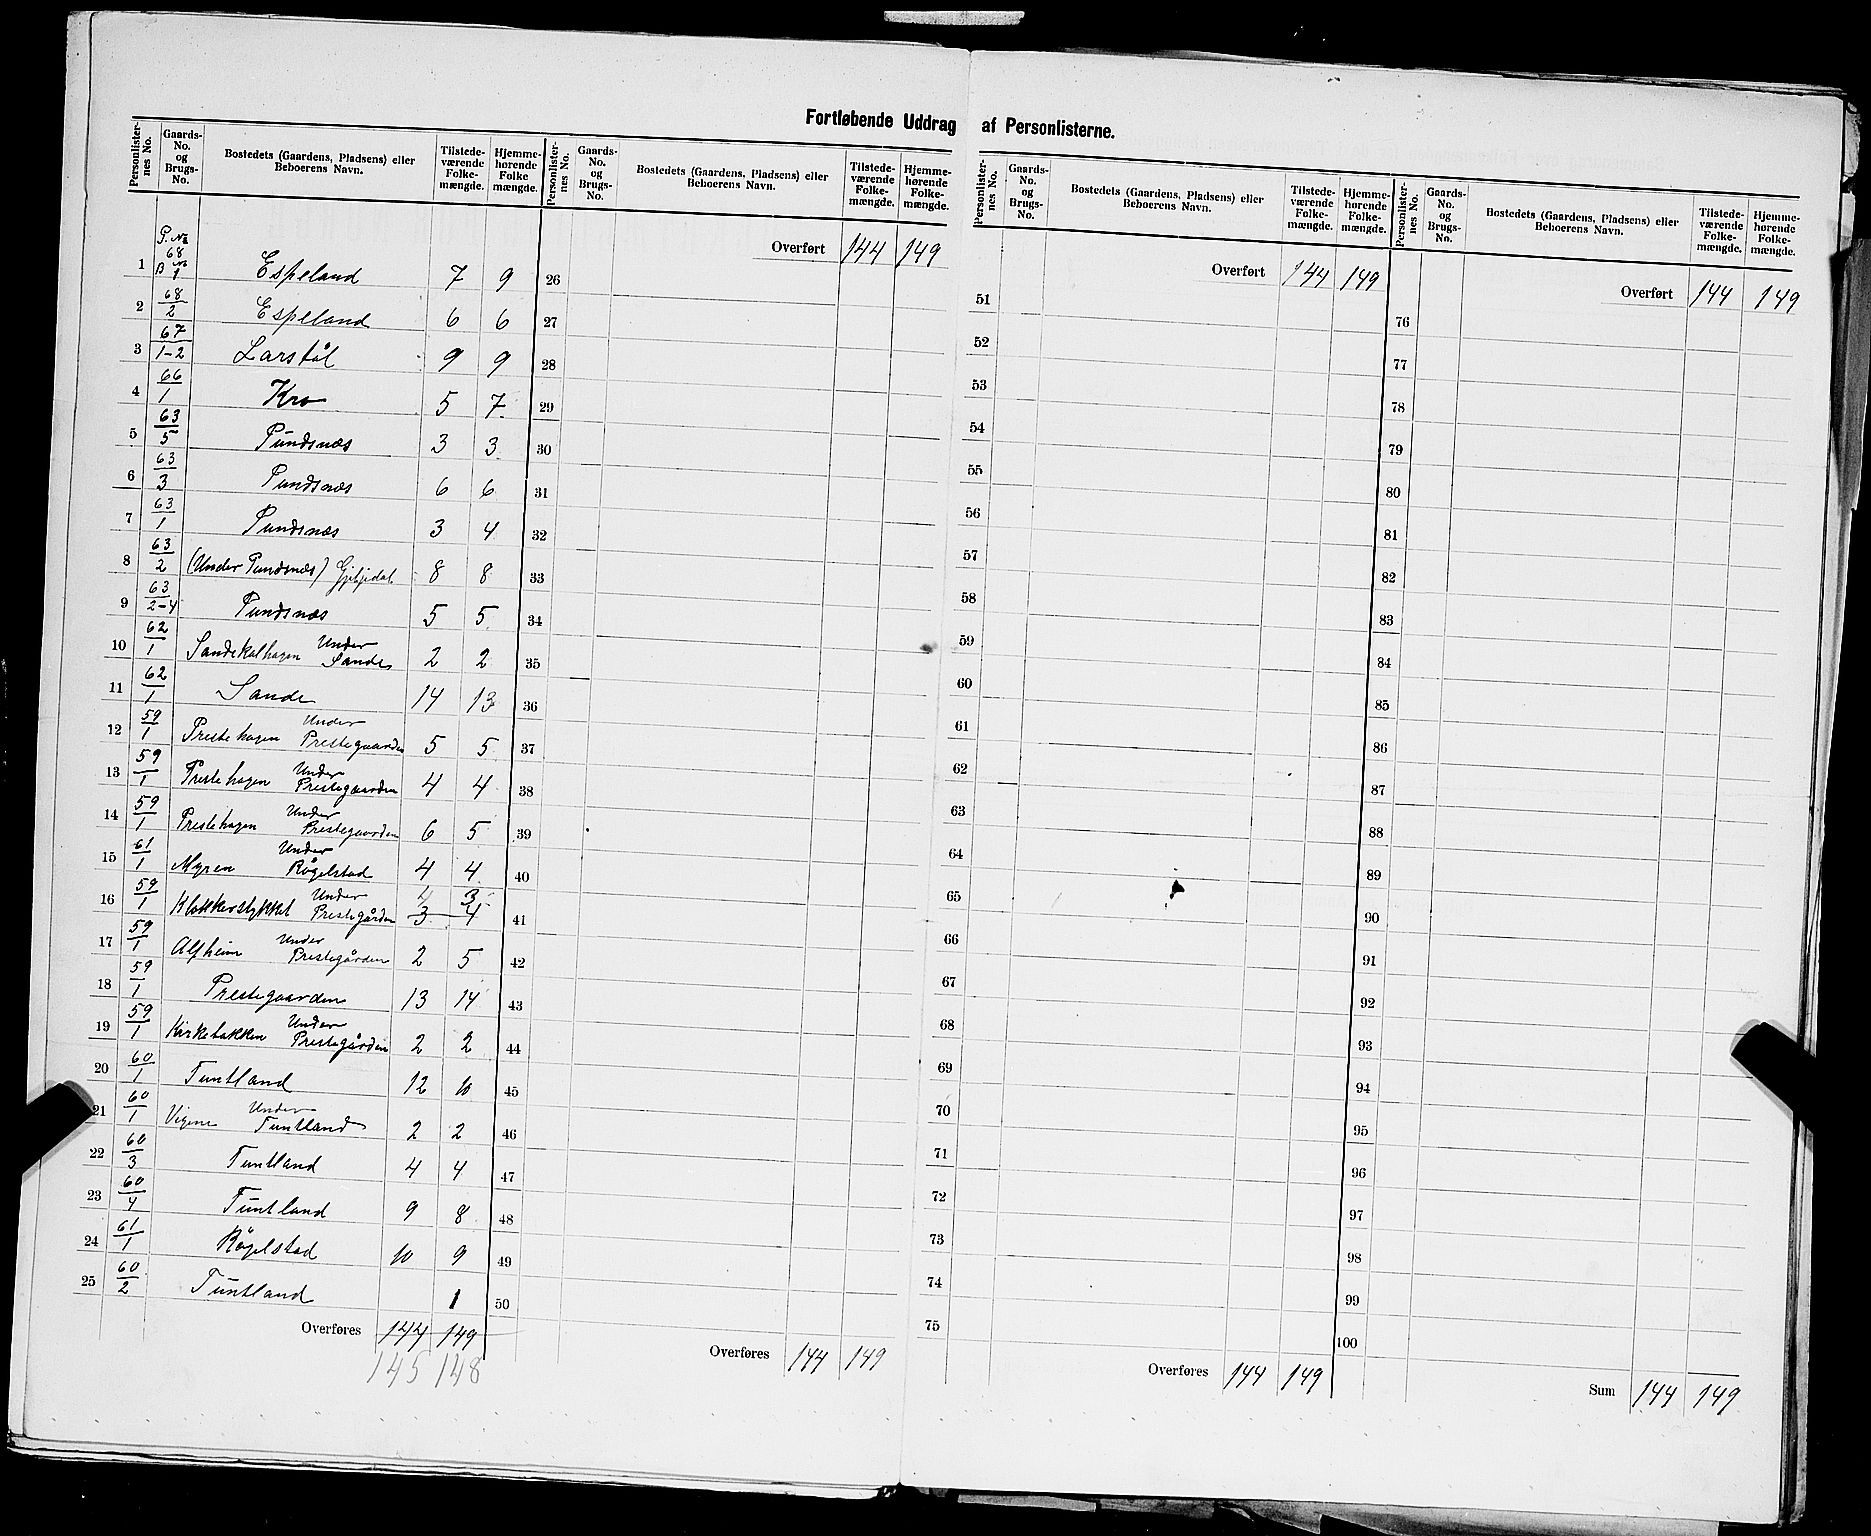 Fortløbende Uddrag af Personlisterne.
Personlisternes No. | Gaards-No. og Brugs-No. | Bostedets (Gaardens, Pladsens) eller Beboerens Navn. | Tilstedeværende Folkemængde. | Hjemmehørende Folkemængde.
1 | G. No 68 B No 1 | Espeland | 7 | 9
2 | 68/2 | Espeland | 6 | 6
3 | 67/1-2 | Larstøl | 9 | 9
4 | 66/1 | Kro | 5 | 7
5 | 63/5 | Pundsnæs | 3 | 3
6 | 63/3 | Pundsnæs | 6 | 6
7 | 63/1 | Pundsnæs | 3 | 4
8 | 63/2 | (Under Pundsnæs) | 8 | 8
9 | 63/2-4 | Pundsnæs | 5 | 5
10 | 62/1 | Sandekalhagen Under Sande | 2 | 2
11 | 62/1 | Sande | 14 | 13
12 | 59/1 | Prestehagen Under Prestegaarden | 5 | 5
13 | 59/1 | Prestehagen Under Prestegaarden | 4 | 4
14 | 59/1 | Prestehagen Under Prestegaarden | 6 | 5
15 | 61/1 | Myren Under Røgelstad | 4 | 4
16 | 59/1 | Klokkerstykket Under Prestegården | 4 3 | 3 4
17 | 59/1 | Alfheim Under Prestegården | 2 | 5
18 | 59/1 | Prestegaarden | 13 | 14
19 | 59/1 | Kirkebakken Under Prestegården | 2 | 2
20 | 60/1 | Tuntland | 12 | 10
21 | 60/1 | Vigene Under Tuntland | 2 | 2
22 | 60/3 | Tuntland | 4 | 4
23 | 60/4 | Tuntland | 9 | 8
24 | 61/1 | Røgelstad | 10 | 9
25 | 60/2 | Tuntland | 1
Overføres 144 149
145 148
Personlisternes No. | Gaards-No. og Brugs-No. | Bostedets (Gaardens, Pladsens) eller Beboerens Navn. | Tilstedeværende Folkemængde. | Hjemmehørende Folkemængde.
Overført 144 149
26
27
28
29
30
31
32
33
34
35
36
37
38
39
40
41
42
43
44
45
46
47
48
49
50
Overføres 144 149
Personlisternes No. | Gaards-No. og Brugs-No. | Bostedets (Gaardens, Pladsens) eller Beboerens Navn. | Tilstedeværende Folkemængde. | Hjemmehørende Folkemængde.
Overført 144 149
51
52
53
54
55
56
57
58
59
60
61
62
63
64
65
66
67
68
69
70
71
72
73
74
75
Overføres 144 149
Personlisternes No. | Gaards-No. og Brugs-No. | Bostedets (Gaardens, Pladsens) eller Beboerens Navn. | Tilstedeværende Folkemængde. | Hjemmehørende Folkemængde.
Overført 144 149
76
77
78
79
80
81
82
83
84
85
86
87
88
89
90
91
92
93
94
95
96
97
98
99
100
Sum 144 149